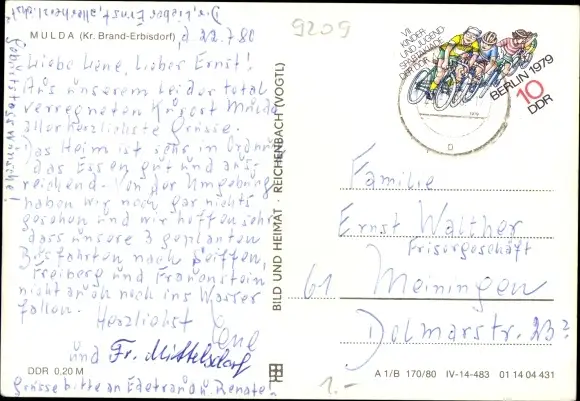 Dir, lieber Ernst, allerherzlichste
Geburtstagswünsche!
MULDA (Kr. Brand-Erbisdorf), d 22.7.80
Liebe Lene, Lieber Ernst!
Aus unserem leider total
verregneten Kurort Mulda
allerherzlichste Grüsse.
Das Heim ist sehr in Ordnung
das Essen gut und aus-
reichend. Von der Umgebung
haben wir noch gar nichts
gesehen und wir hoffen sehr
dass unsere 3 geplanten
Busfahrten nach Seiffen,
Freiberg und Frauenstein
nicht auch noch ins Wasser
fallen.
Herzlichst
Lene
und Fr. Mittelsdorf
DDR 0,20 M
Grüsse bitte an Edetraud u. Renate!
BILD UND HEIMAT · REICHENBACH (VOGTL)
9209
VII.
KINDER-
UND JUGEND-
SPARTAKIADE
DER DDR
BERLIN 1979
10
DDR
Familie
Ernst Walther
Frisörgeschäft
61 Meiningen
Dolmarstr. 23?
1.-
A 1/B 170/80 IV-14-483 01 14 04 431